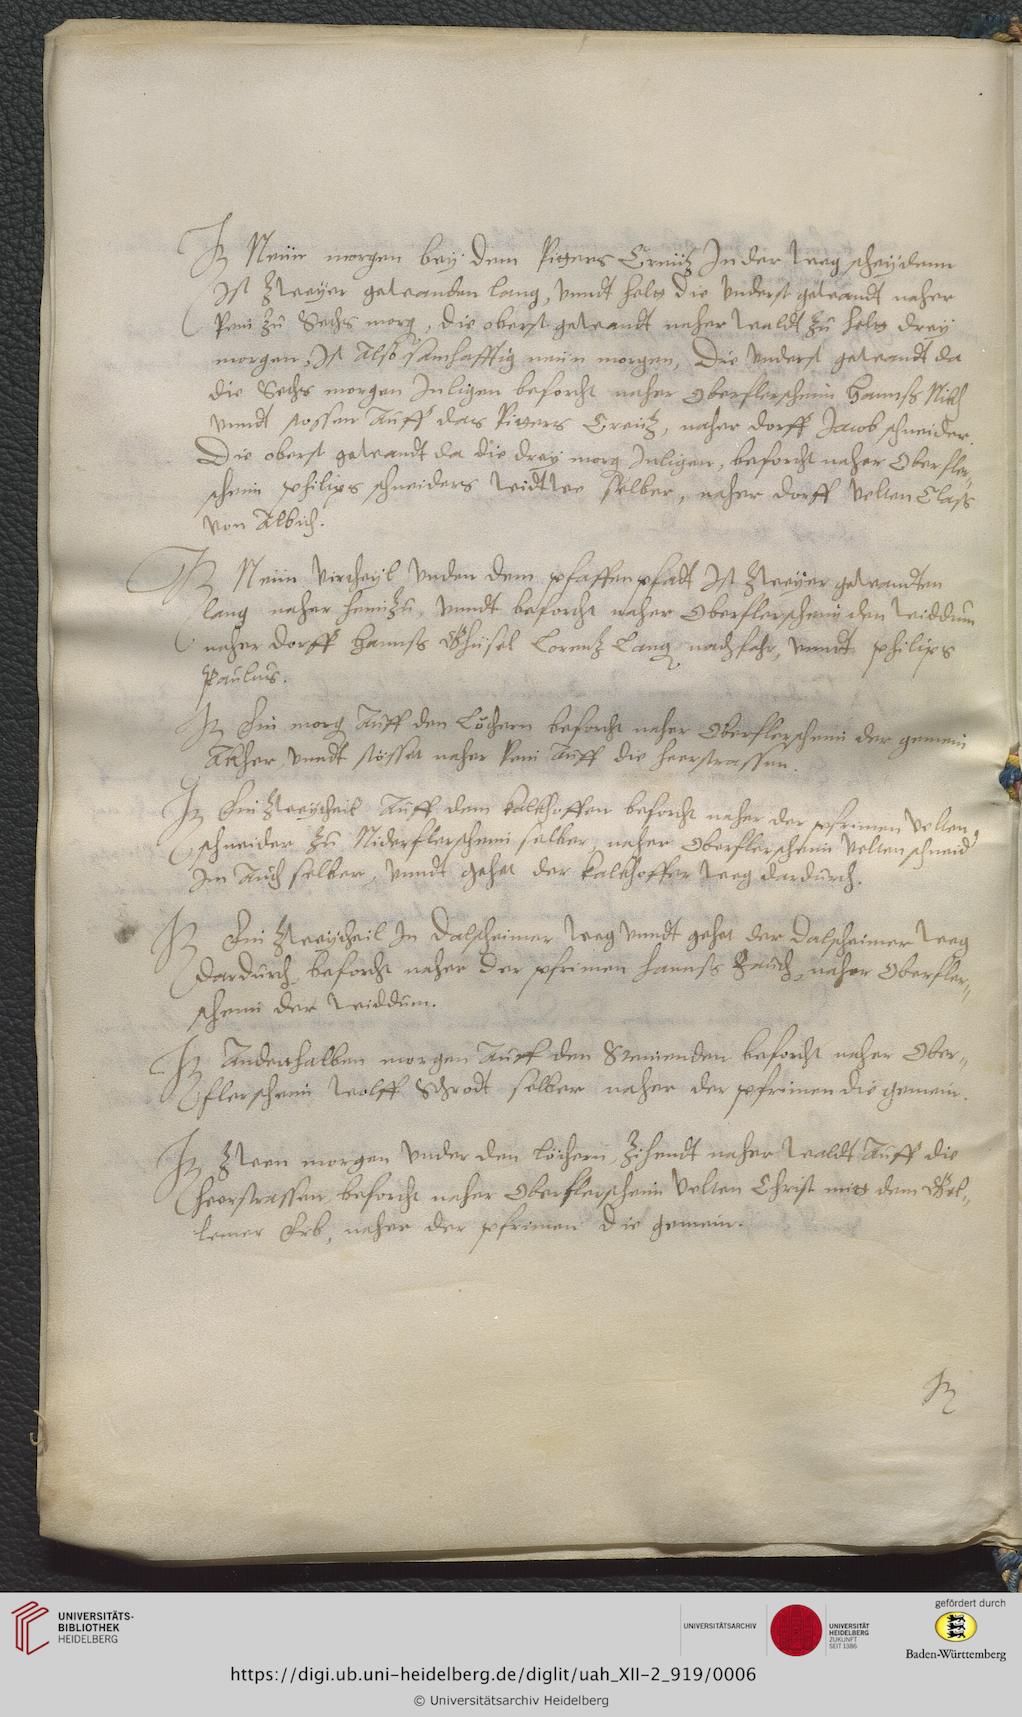 It Neün morgen bey dem Pitters Creütz In der weg scheydenn
Ist Zweyer gewandten lang, vnndt helt die vnderst gewandt naher
Rein zu Sechs morg, die oberst gewandt naher waldt zu helt drey
morgen, Ist Also samhafftig neün morgen, Die vnderst gewandt da
die Sechs morgen Inligen beforcht naher Oberflerscheim Hannß
vnndt stossen Auff das Pitters Creütz, naher dorff Jacob schneider.
Die oberst gewandt da die drey morg Inligen, beforcht naher Oberfler„
scheim philips schneiders widtwe selber, naher dorff Velten Claß
von Albich.
It Neün Virtheyl vnden dem pfaffen pfadt Ist Zweyer gewandten
lang naher heimZu, vnndt beforcht naher Oberflerscheim den widdum
naher dorff Hannß Lorentz Lang nachfahr, vnndt philips
Paulus.
It Ein morg Auff den Löchern beforcht naher Oberflerscheim der gemein
Äcker, vnndt stösset naher Rein Auff die heerstrassen.
It Ein Zweytheil Auff dem kalckhoffen beforcht naher der pfrimen Velten
schneider zu Niderflerscheim selber, naher Oberflerscheim Velten schneid
Im Auch selber, vnndt gehet der kalckhoffer weg dardurch.
It Ein Zweytheil In Dalscheimer weg vnndt gehet der Dalscheimer weg
dardurch beforcht naher der pfrimen hannß Rauch, naher Oberfler„
scheim der widdum.
It Anderthalben morgen Auff den beforcht naher Ober„
flerscheim wolff Schrodt selber naher der pfrimen die gemein.
It Zwen morgen vnder den löchern, Zihendt naher waldt Auff die
heerstrassen, beforcht naher Oberflerscheim Velten Christ mitt dem
Erb, naher der pfrimen die gemein.
It
UNIVERSITÄTS-
BIBLIOTHEK
HEIDELBERG
UNIVERSITÄTSARCHIV
UNIVERSITÄT
HEIDELBERG
ZUKUNFT
SEIT 1386
gefördert durch
Baden-Württemberg
https://digi.ub.uni-heidelberg.de/diglit/uah_XII-2_919/0006
© Universitätsarchiv Heidelberg